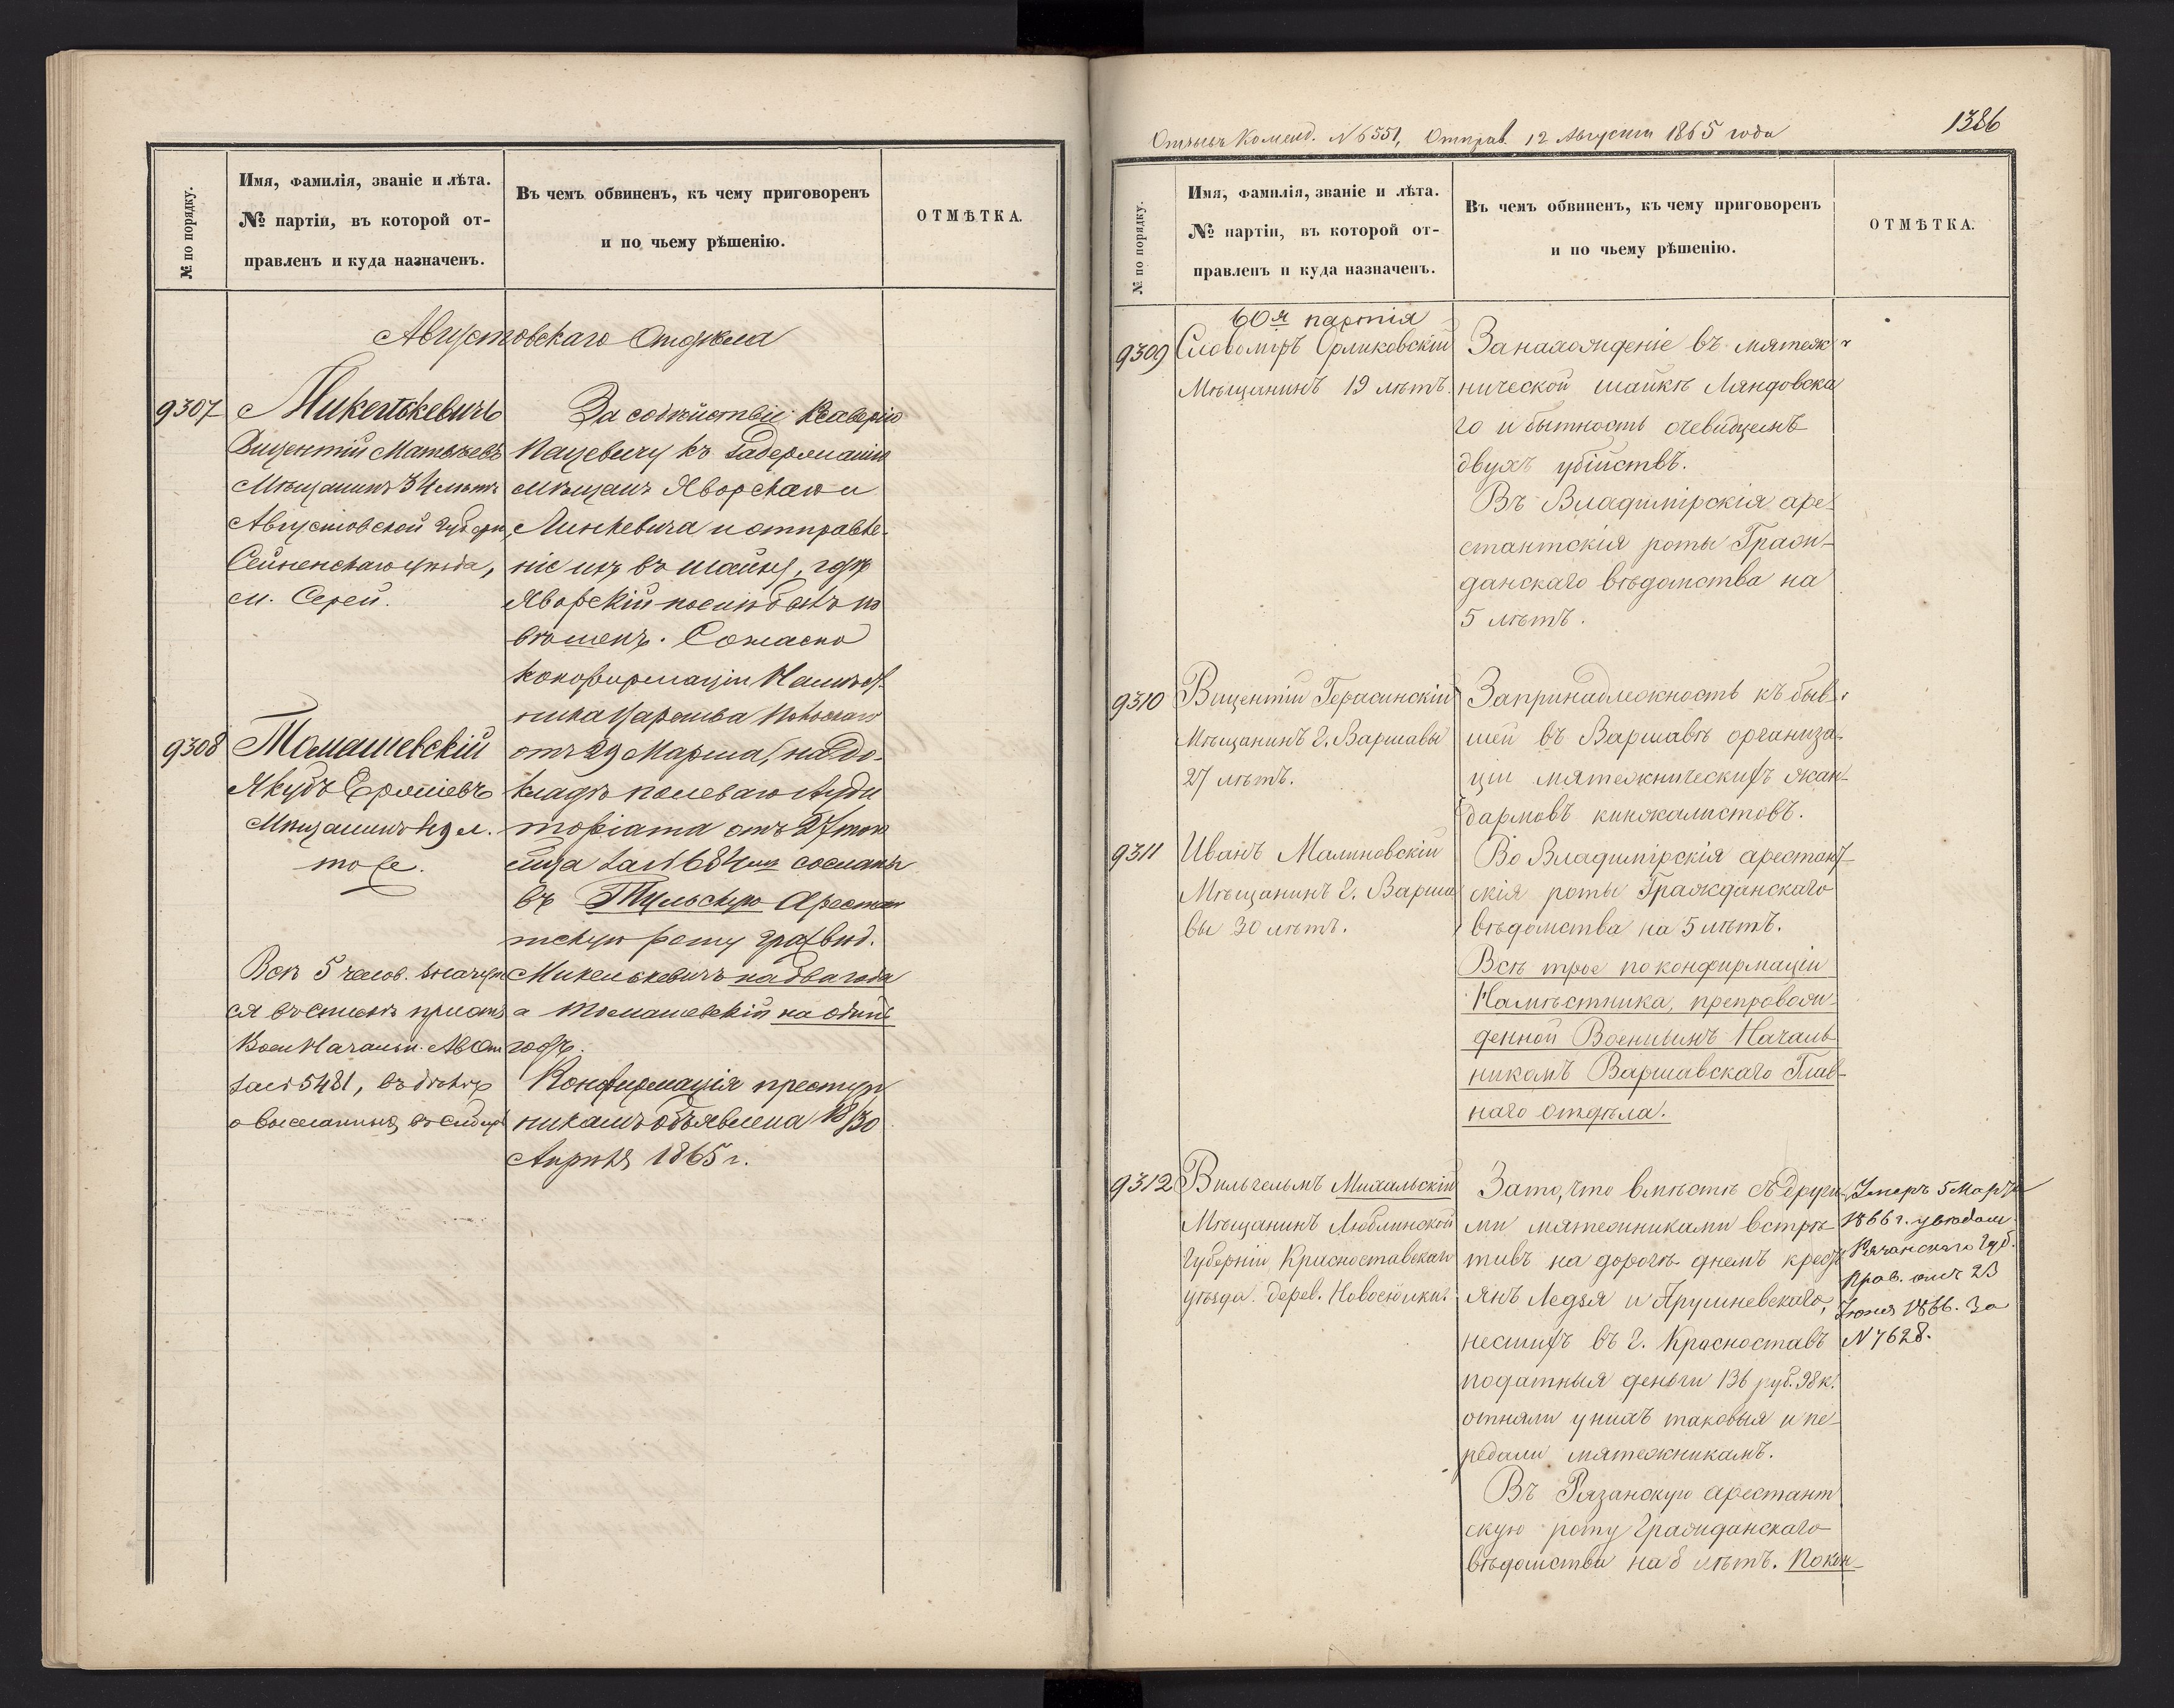 № по порядку.
Имя, фамилія, званіе и лѣта.
№ партіи, въ которой от-
правленъ и куда назначенъ.
Въ чемъ обвиненъ, къ чему приговоренъ
и по чьему рѣшенію.
ОТМѢТКА.
Августовскаго Отдѣла
9307
Микелькевичъ
Вицентій Матвѣевъ
Мѣщанинъ 34 лѣтъ
Августовской Губерн,
Сейненскаго уѣзда,
м. Серей.
За содѣйствіе Ксаверію
Пацевичу къ задержанію
мѣщанъ Яворскаго и
Линкевича и отправле-
ніе ихъ въ шайку, гдѣ
Яворскій послѣ былъ по
вѣшенъ. Согласно
конфирмаціи Намѣст-
ника Царства Польскаго
отъ 29 Марта, на до-
кладѣ полеваго Ауди
торіата отъ 27 того
мѣсяца за № 684 сосланы
въ Тульскую Арестан
тскую роту граж вѣд.
Микелькевичъ на два года
а Томашевскій на одинъ
годъ.
Конфирмація преступ
никамъ объявлена 18/30
Апрѣля 1865 г.
9308
Томашевскій
Якубъ
Мѣщанинъ 49 л.
тоже.
Всѣ 5 челов. значут
ся въ спискѣ
Воен Начальн. Ав От
за № 5481,
о высланныхъ въ Сибирь
1386
Отзывъ Коменд. № 6551, Отправ. 12 Августа 1865 года
№ по порядку.
Имя, фамилія, званіе и лѣта.
№ партіи, въ которой от-
правленъ и куда назначенъ.
Въ чемъ обвиненъ, къ чему приговоренъ
и по чьему рѣшенію.
ОТМѢТКА.
60я партія
9309
Словоміръ Орликовскій
Мѣщанинъ 19 лѣтъ.
За нахожденіе въ мятеж
нической шайкѣ Ляндовска
го и бытность очевидцемъ
двухъ убійствъ.
Въ Владимірскія аре-
стантскія роты Граж-
данскаго вѣдомства на
5 лѣтъ.
9310
Вицентій Герасинскій
Мѣщанинъ г. Варшавы
27 лѣтъ.
За принадлежность къ быв-
шей въ Варшавѣ организа-
ціи мятежническихъ жан-
дармовъ кинжалистовъ.
9311
Иванъ Малиновскій
Мѣщанинъ г. Варша
вы 30 лѣтъ.
Во Владимірскія арестант-
скія роты Гражданскаго
вѣдомства на 5 лѣтъ.
Всѣ трое по конфирмаціи
Намѣстника, препровож-
денной Военнымъ Началь-
никомъ Варшавскаго Глав-
наго отдѣла.
9312
Вильгельмъ Михальскій
Мѣщанинъ Люблинской
Губерніи Красноставскаго
уѣзда. дерев. Новосюлки.
За то, что вмѣстѣ съ други-
ми мятежниками встрѣ-
тивъ на дорогѣ днемъ крест
янъ Ледзя и Прушневскаго,
несшихъ въ г. Красноставъ
податныя деньги 136 руб. 98 к.
отняли у нихъ таковыя и пе-
редали мятежникамъ.
Въ Рязанскую арестант
скую роту гражданскаго
вѣдомства на 8 лѣтъ. По кон-
Умеръ 5 Марта
1866 г. увѣдом.
Рязанскаго Губ.
Прав. отъ 23
Іюня 1866. За
№ 7628.